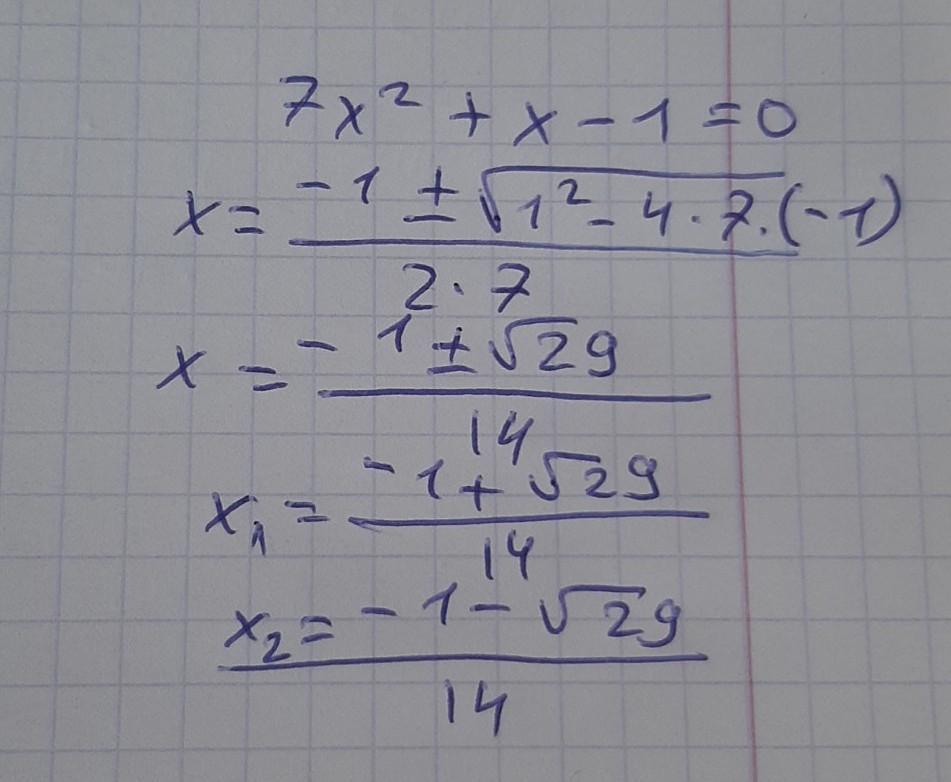 7x² + x - 1 = 0
x = (-1 ± √(1² - 4 · 7 · (-1))) / (2 · 7)
x = (-1 ± √29) / 14
x₁ = (-1 + √29) / 14
x₂ = (-1 - √29) / 14